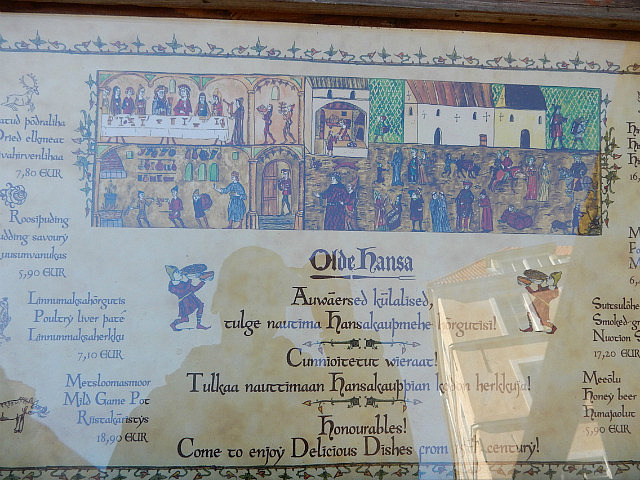 põdraliha
Dried elkmeat
7,80 EUR
Roosipuding
Pudding savoury
5,90 EUR
Linnumaksahõrgutis
Poultry liver paté
Linnunmaksaherkku
7,10 EUR
Metsloomasmoor
Mild Game Pot
Riistakäristys
18,90 EUR
Olde Hansa
Auwäersed külalised,
tulge nautima Hansakaupmehe hõrgutisi!
Cunnioitetut wieraat!
Tulkaa nauttimaan Hansakauppian herkkuja!
Honourables!
Come to enjoy Delicious Dishes from century!
17,20 EUR
Meeõlu
Honey beer
Hunajaolut
5,90 EUR